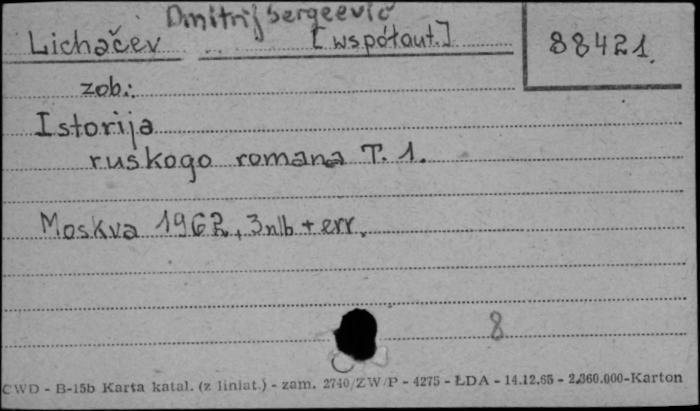 Dmitrij Sergeevič
Lichačev [współaut.] 88421.
zob.:
Istorija
ruskogo romana T. 1.
Moskva 1962, 3nlb + err.
8
CWD - B-15b Karta katal. (z liniat.) - zam. 2740/ZW/P - 4275 - ŁDA - 14.12.65 - 2.360.000-Karton